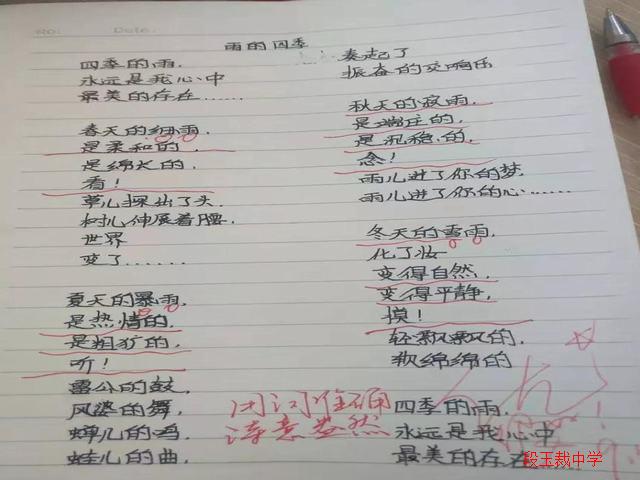 No:
Date:
雨的四季
四季的雨,
永远是我心中
最美的存在......
春天的细雨,
是柔和的,
是绵长的,
看!
草儿探出了头,
树儿伸展着腰,
世界
变了......
夏天的暴雨,
是热情的,
是粗犷的,
听!
雷公的鼓,
风婆的舞,
蝉儿的鸣,
蛙儿的曲,
奏起了
振奋的交响乐
秋天的寂雨,
是端庄的,
是沉稳的,
念!
雨儿进了你的梦,
雨儿进了你的心......
冬天的雪雨,
化了妆
变得自然,
变得平静,
摸!
轻飘飘的,
软绵绵的
四季的雨,
永远是我心中
最美的存在
用词准确
诗意盎然
段玉裁中学